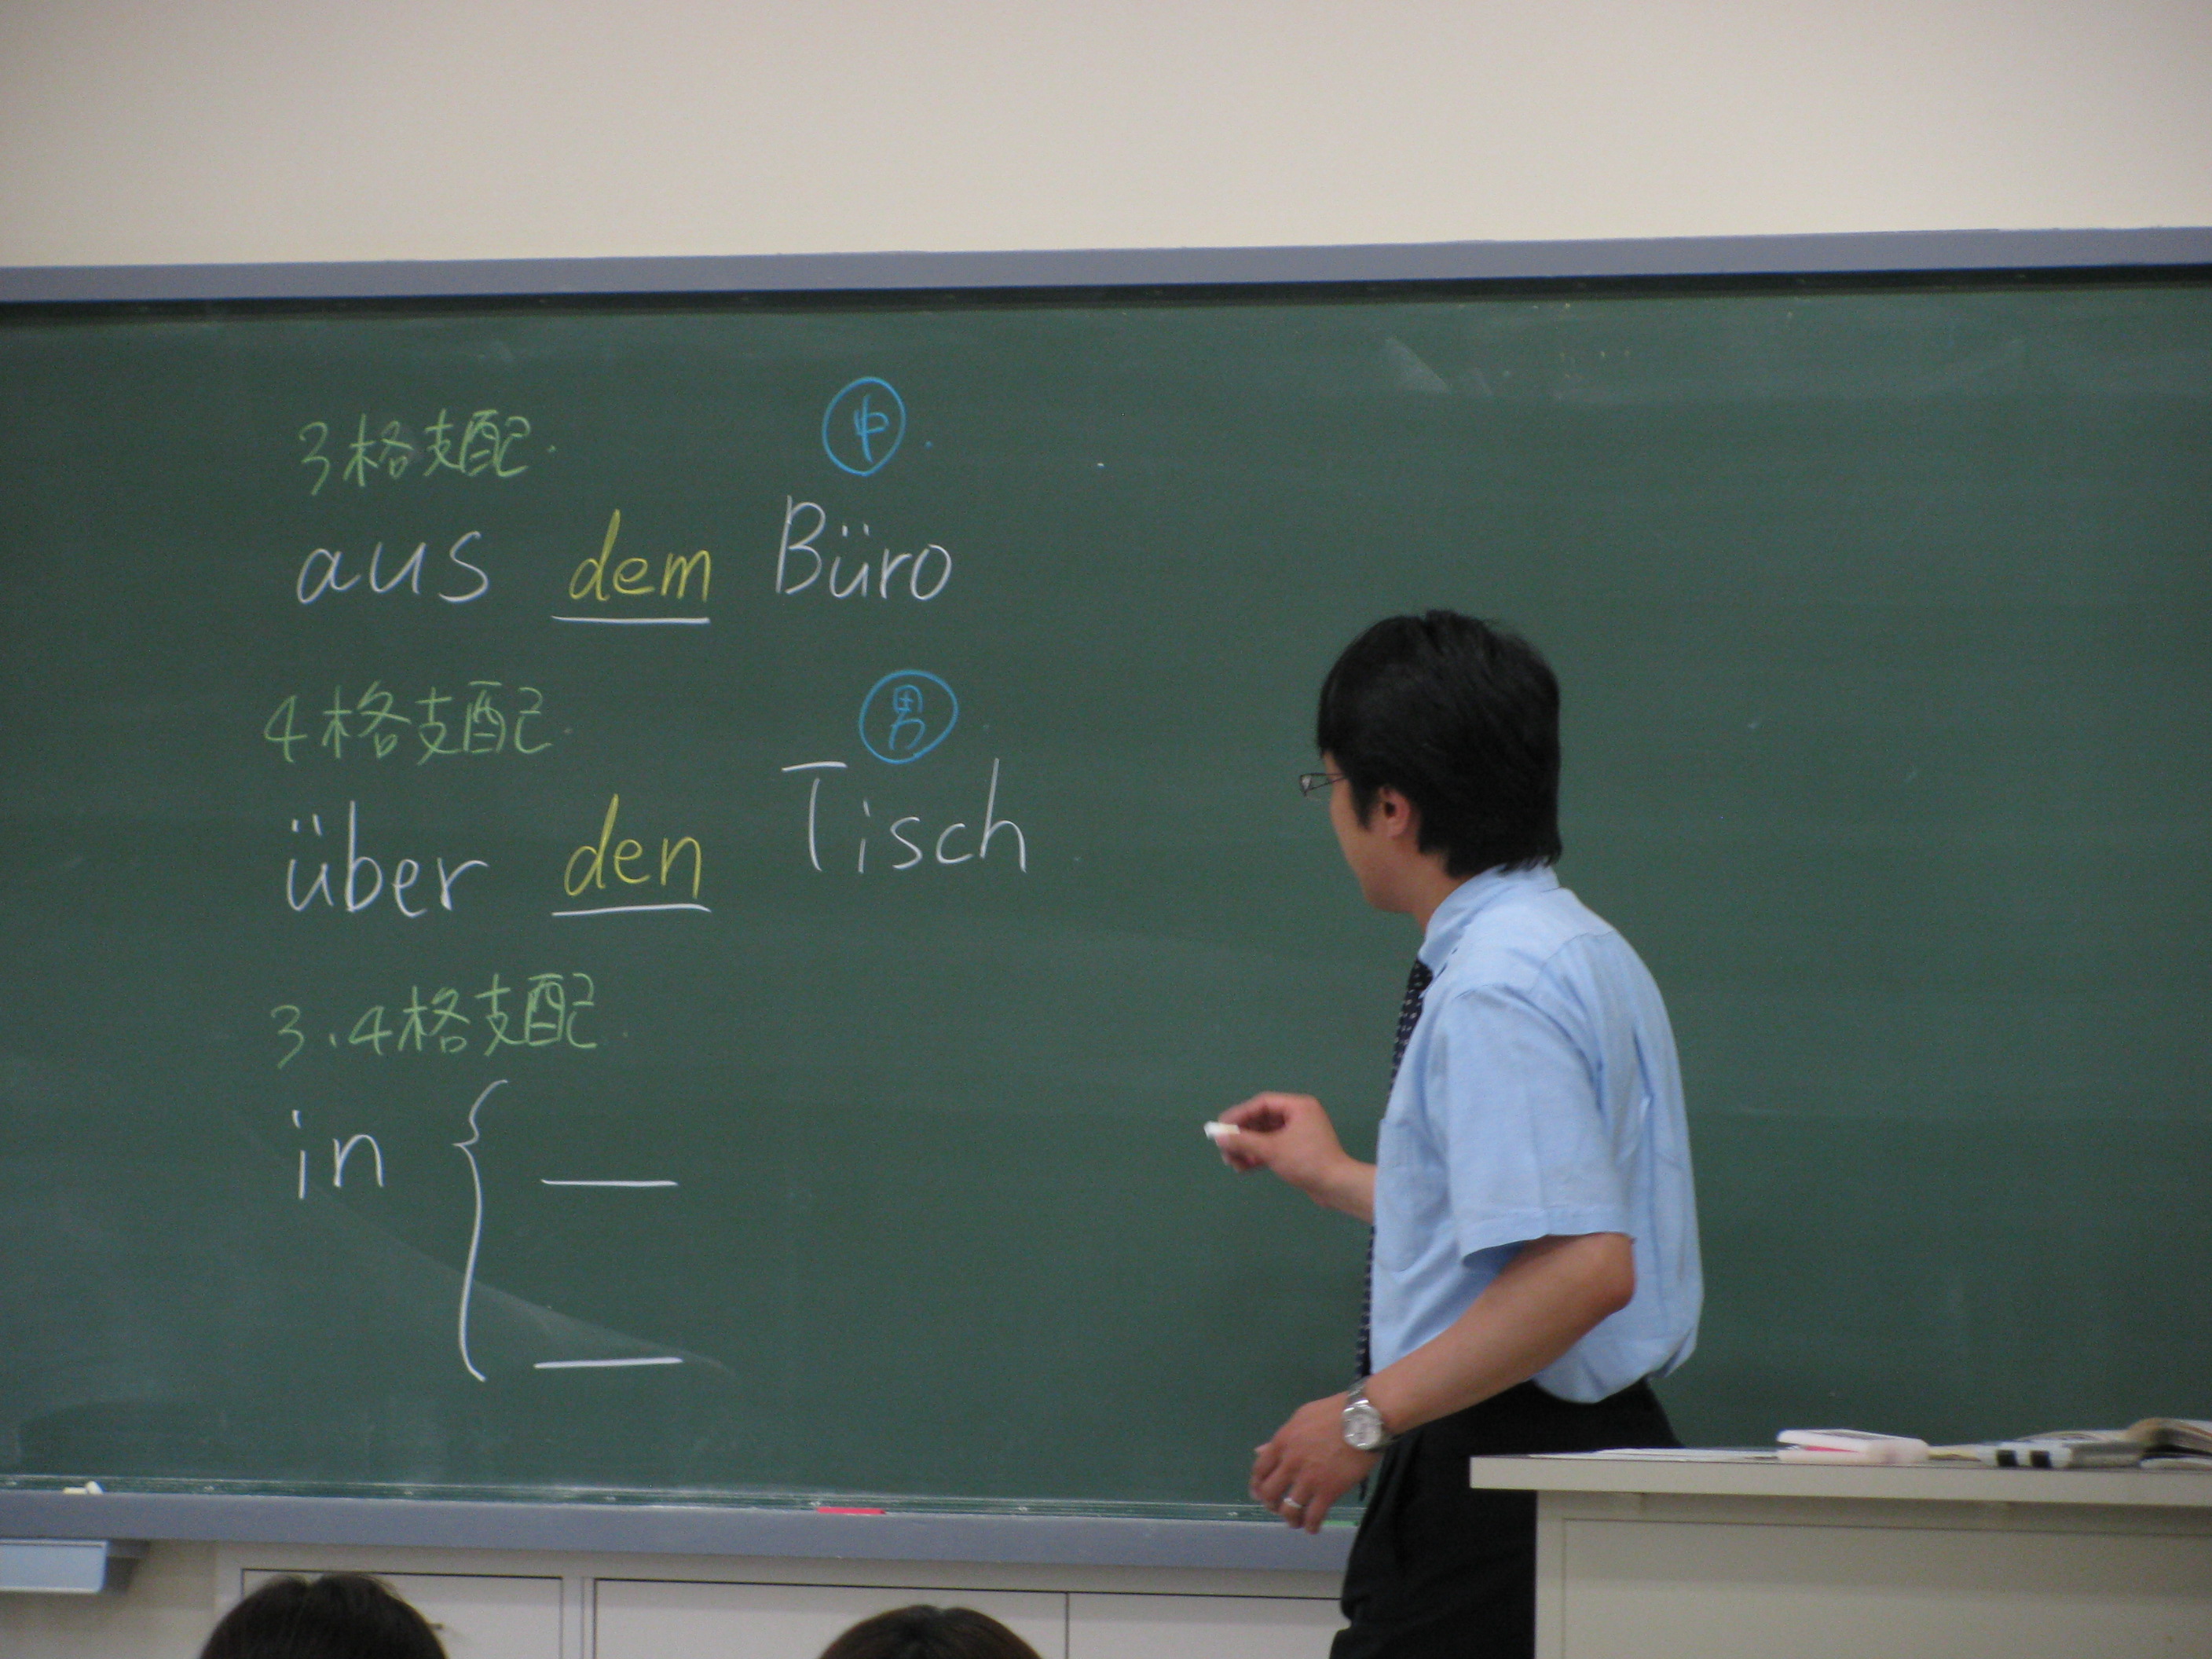 3格支配. 中.
aus dem Büro
4格支配. 男.
über den Tisch
3.4格支配.
in {